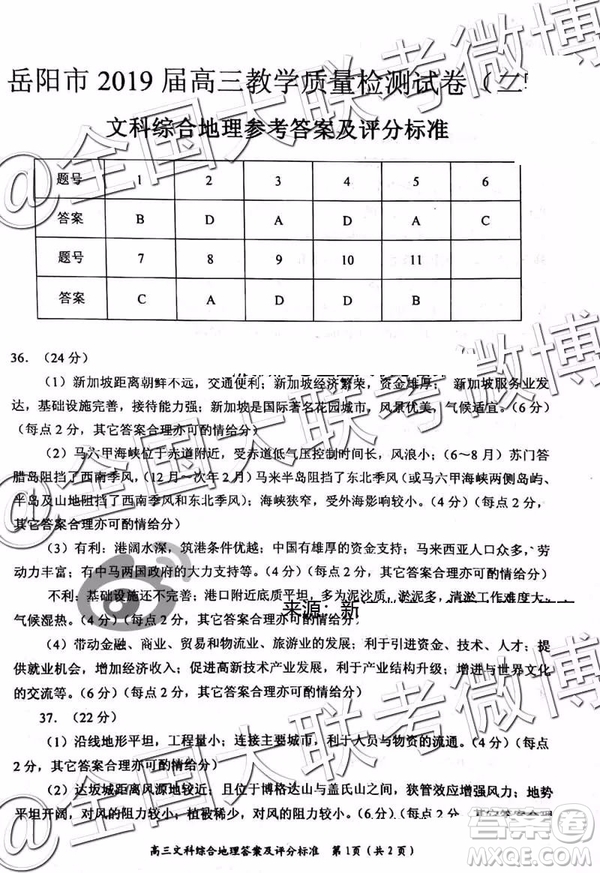 岳阳市 2019 届高三教学质量检测试卷（二
文科综合地理参考答案及评分标准
题号 1 2 3 4 5 6
答案 B D A D A C
题号 7 8 9 10 11
答案 C A D D D
36. （24 分）
（1）新加坡距离朝鲜不远，交通便利；新加坡经济繁荣，资金雄厚； 新加坡服务业发
达，基础设施完善，接待能力强；新加坡是国际著名花园城市，风景优美，气候适宜。（6 分）
（每点 2 分，其它答案合理亦可酌情给分）
（2）马六甲海峡位于赤道附近，受赤道低气压控制时间长，风浪小；（6～8 月）苏门答
腊岛阻挡了西南季风，（12 月～次年 2 月）马来半岛阻挡了东北季风（或马六甲海峡两侧岛屿、
半岛及山地的阻挡了西南季风和东北季风）；海峡狭窄，受外海影响较小。（4 分）（每点 2 分，
其它答案合理亦可酌情给分）
（3）有利：港阔水深，筑港条件优越；中国有雄厚的资金支持；马来西亚人口众多，劳
动力丰富；有中马两国政府的大力支持。（4 分）（每点 2 分，其它答案合理亦可酌情给分）
不利：基础设施还不完善；港口附近浅滩多，多为泥沙质，淤泥多，清淤工作难度大，
气候湿热。（4 分）（每点 2 分，其它答案合理亦可酌情给分）
来源：新
（4）带动金融、商业、贸易和物流业、旅游业的发展；利于引进资金、技术、人才；提
供就业机会，增加经济收入；促进高新技术产业发展，利于产业升级；增进与世界文化
的交流等。（6 分）（每点 2 分，其它答案合理亦可酌情给分）
37. （22 分）
（1）沿线地形平坦，工程量小；连接主要城市，利于人员与物资的流通。（4 分）（每点
2 分，其它答案合理亦可酌情给分）
（2）达坂城距离风源地较近；位于博格达山与盖氏山之间，狭管效应增强风力；地势
平坦开阔，对风的阻力较小；植被稀少，对风的阻力小。（4 分）（每点 2 分，其它答案合理
高三文科综合地理答案及评分标准 第 1 页（共 2 页）
@全国大联考微博
@全国大联考微博
答案圈